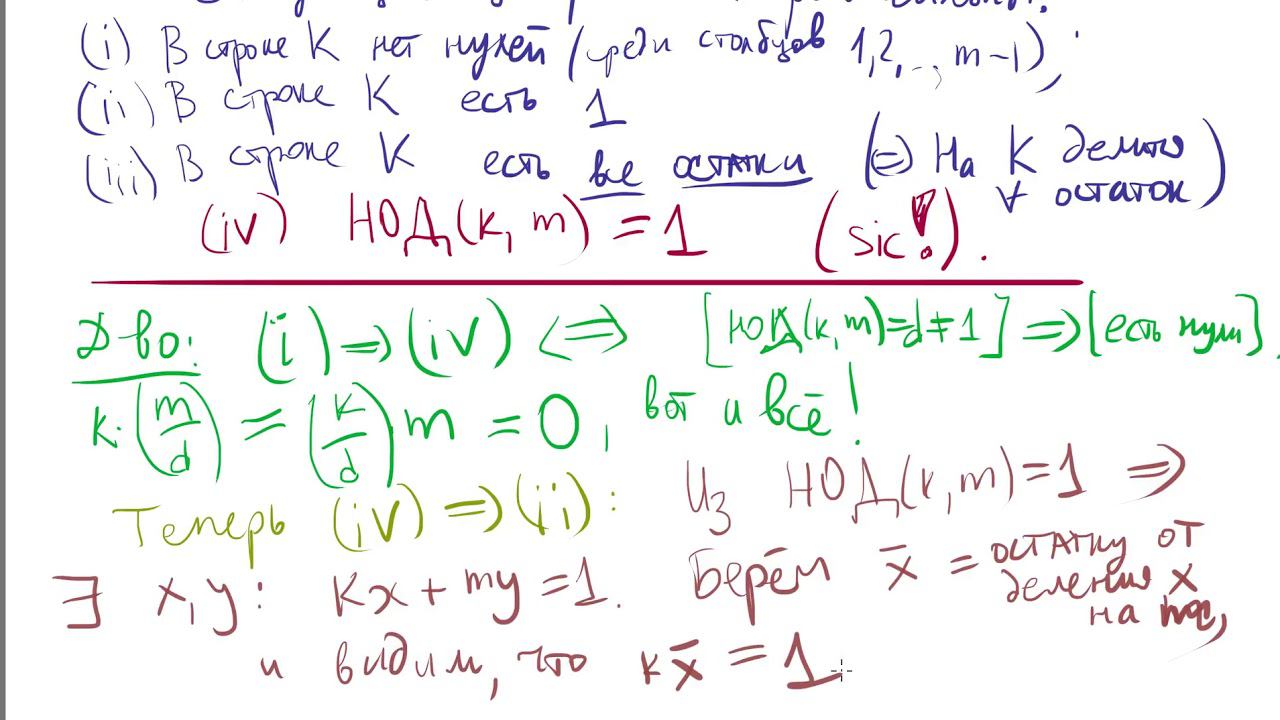 (i) В строке K нет нулей (среди столбцов 1,2,.., m-1),
(ii) В строке K есть 1
(iii) В строке K есть все остатки (⇔ На K делится ∀ остаток)
(iv) НОД(k, m) = 1 (sic!).
Д-во: (i) ⇒ (iv) ⇔ [НОД(k,m)=d≠1] ⇒ [есть нули],
k·(m/d) = (k/d) m = 0, вот и всё!
Теперь (iv) ⇒ (ii): Из НОД(k,m)=1 ⇒
∃ x, y: kx + my = 1. Берём x̄ = остатку от деления x на m,
и видим, что kx̄ = 1